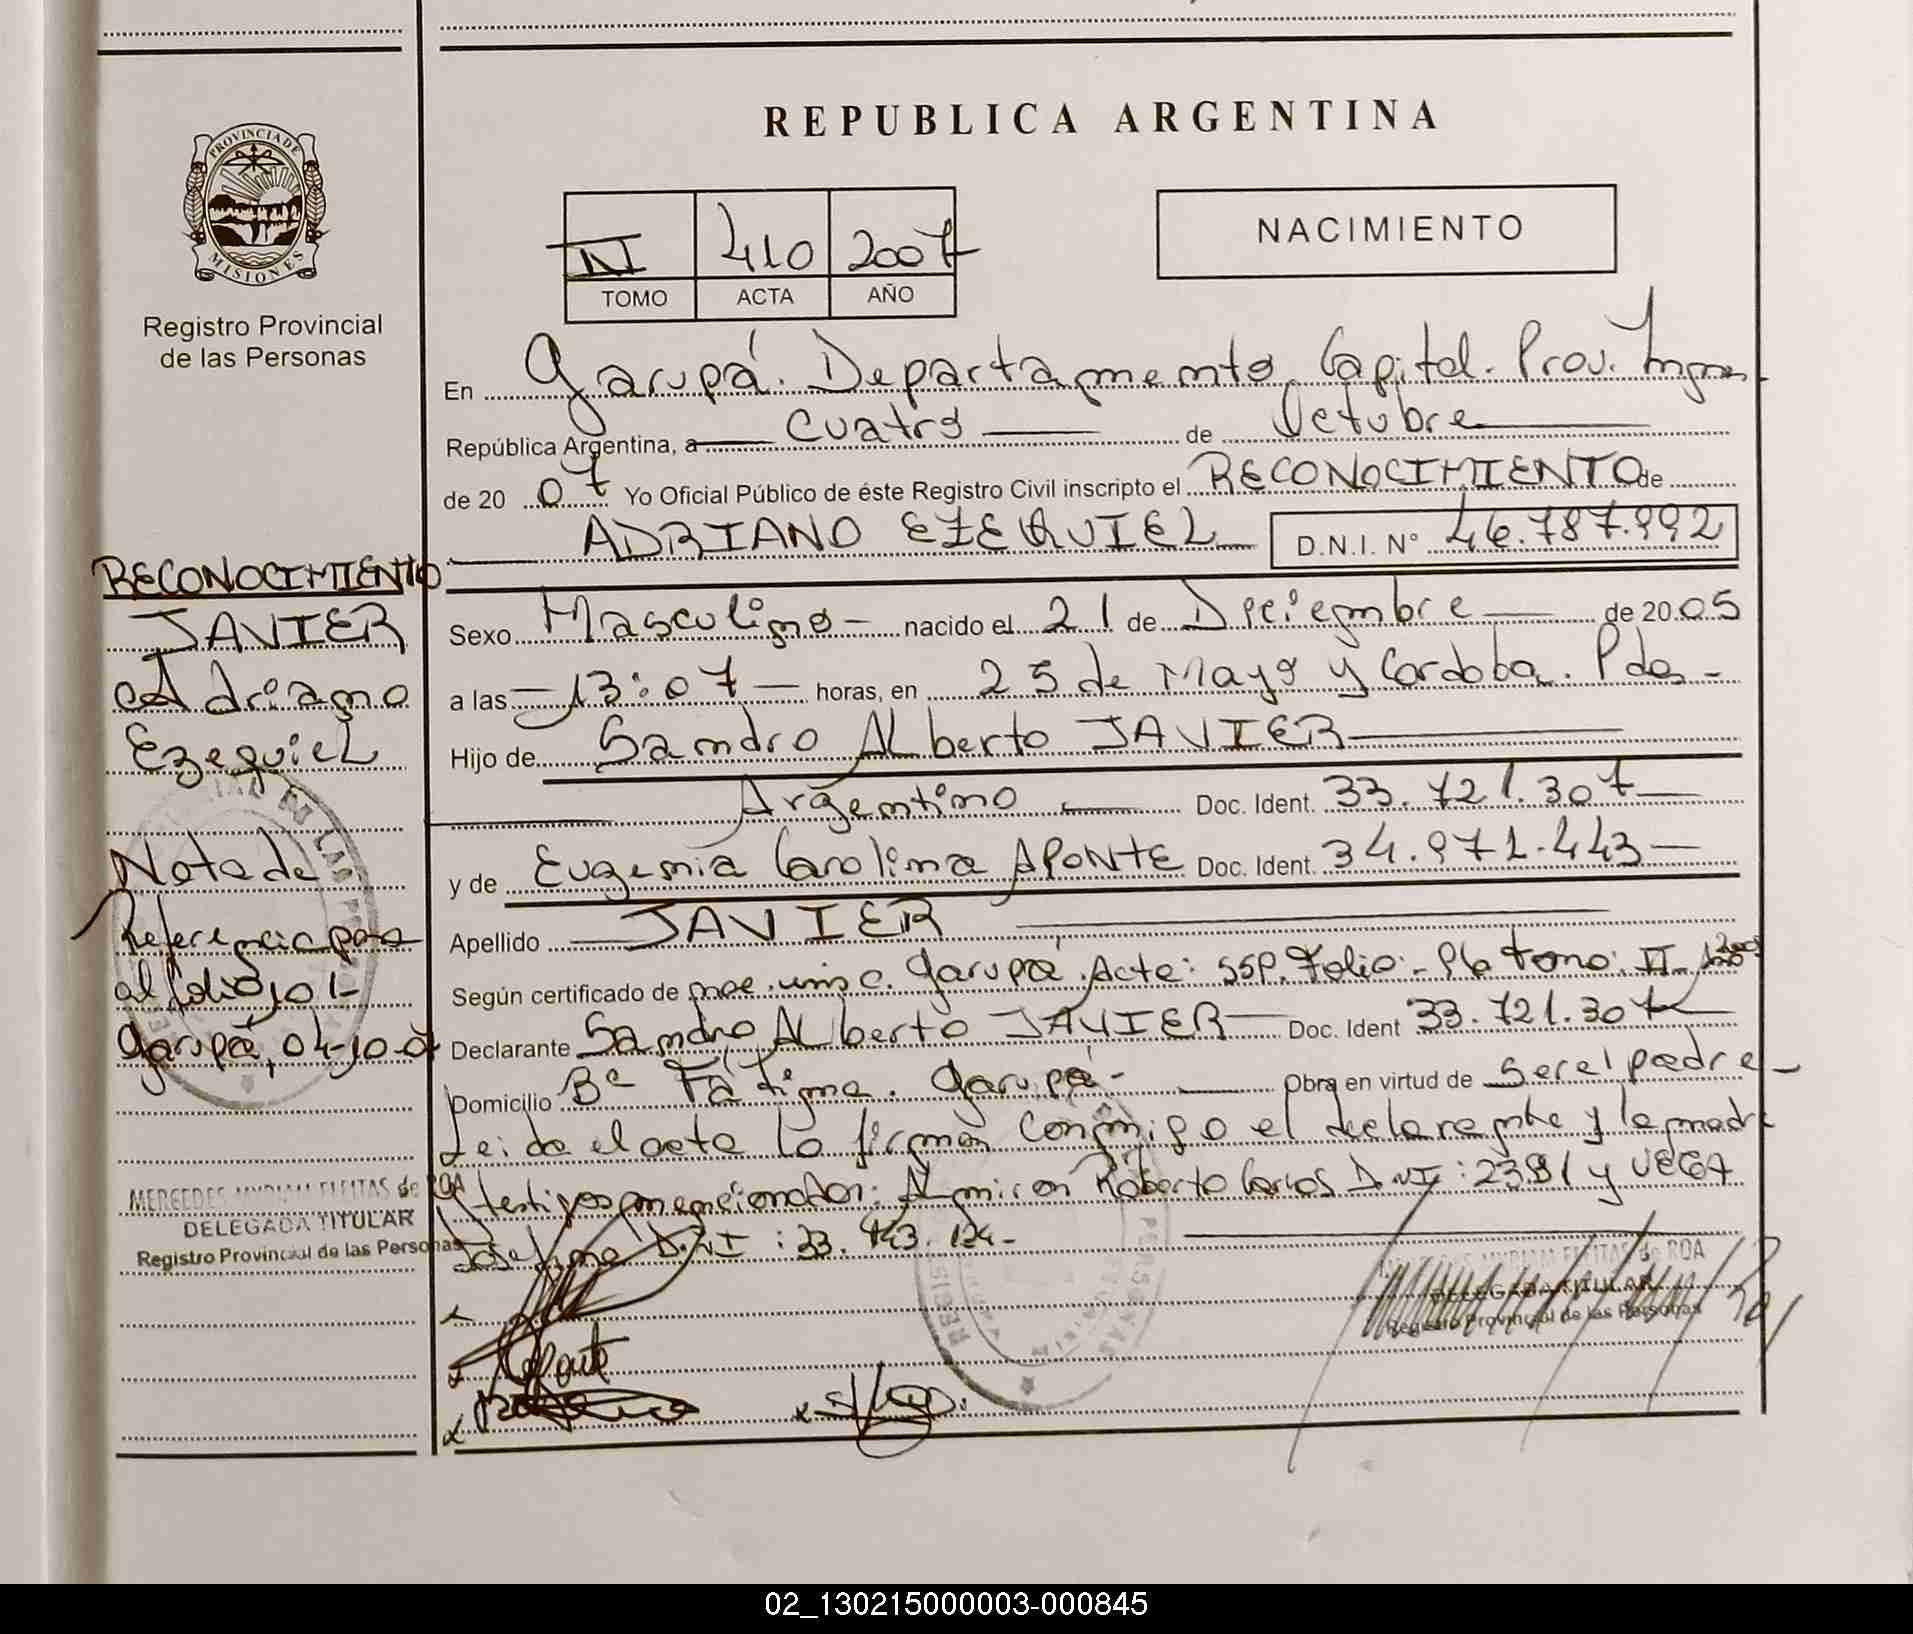 REPUBLICA ARGENTINA
PROVINCIA DE MISIONES
Registro Provincial
de las Personas
410 2007
TOMO ACTA AÑO
NACIMIENTO
En Garupá. Departamento Capital. Prov.
República Argentina, a cuatro de Octubre
de 20 07 Yo Oficial Público de éste Registro Civil inscripto el RECONOCIMIENTO de
ADRIANO EZEQUIEL D.N.I. Nº 46.787.992
Sexo Masculino nacido el 21 de Diciembre de 2005
a las 13:07 horas, en 25 de Mayo y Cordoba. Pdas
Hijo de Sandro Alberto JAVIER
Argentino Doc. Ident. 33.721.307
y de Eugenia Carolina APONTE Doc. Ident. 34.971.443
Apellido JAVIER
Según certificado de Garupá. Acta: 55P. Folio: Tomo: II
Declarante Sandro Alberto JAVIER Doc. Ident 33.721.307
Domicilio Bº Fátima. Garupá Obra en virtud de ser el padre
Leida el acta la firman conmigo el declarante y la madre
testigos mencionados: Almiron Roberto Carlos D.NI: y VEGA
D.NI:
RECONOCIMIENTO
JAVIER
Adriano
Ezequiel
Nota de
Referencia para
al folio 101-
Garupá, 04-10-07
MERCEDES MYRIAM FLEITAS de ROA
DELEGADA TITULAR
Registro Provincial de las Personas
MYRIAM FLEITAS de ROA
DELEGADA TITULAR
Registro Provincial de las Personas
Aponte
02_130215000003-000845